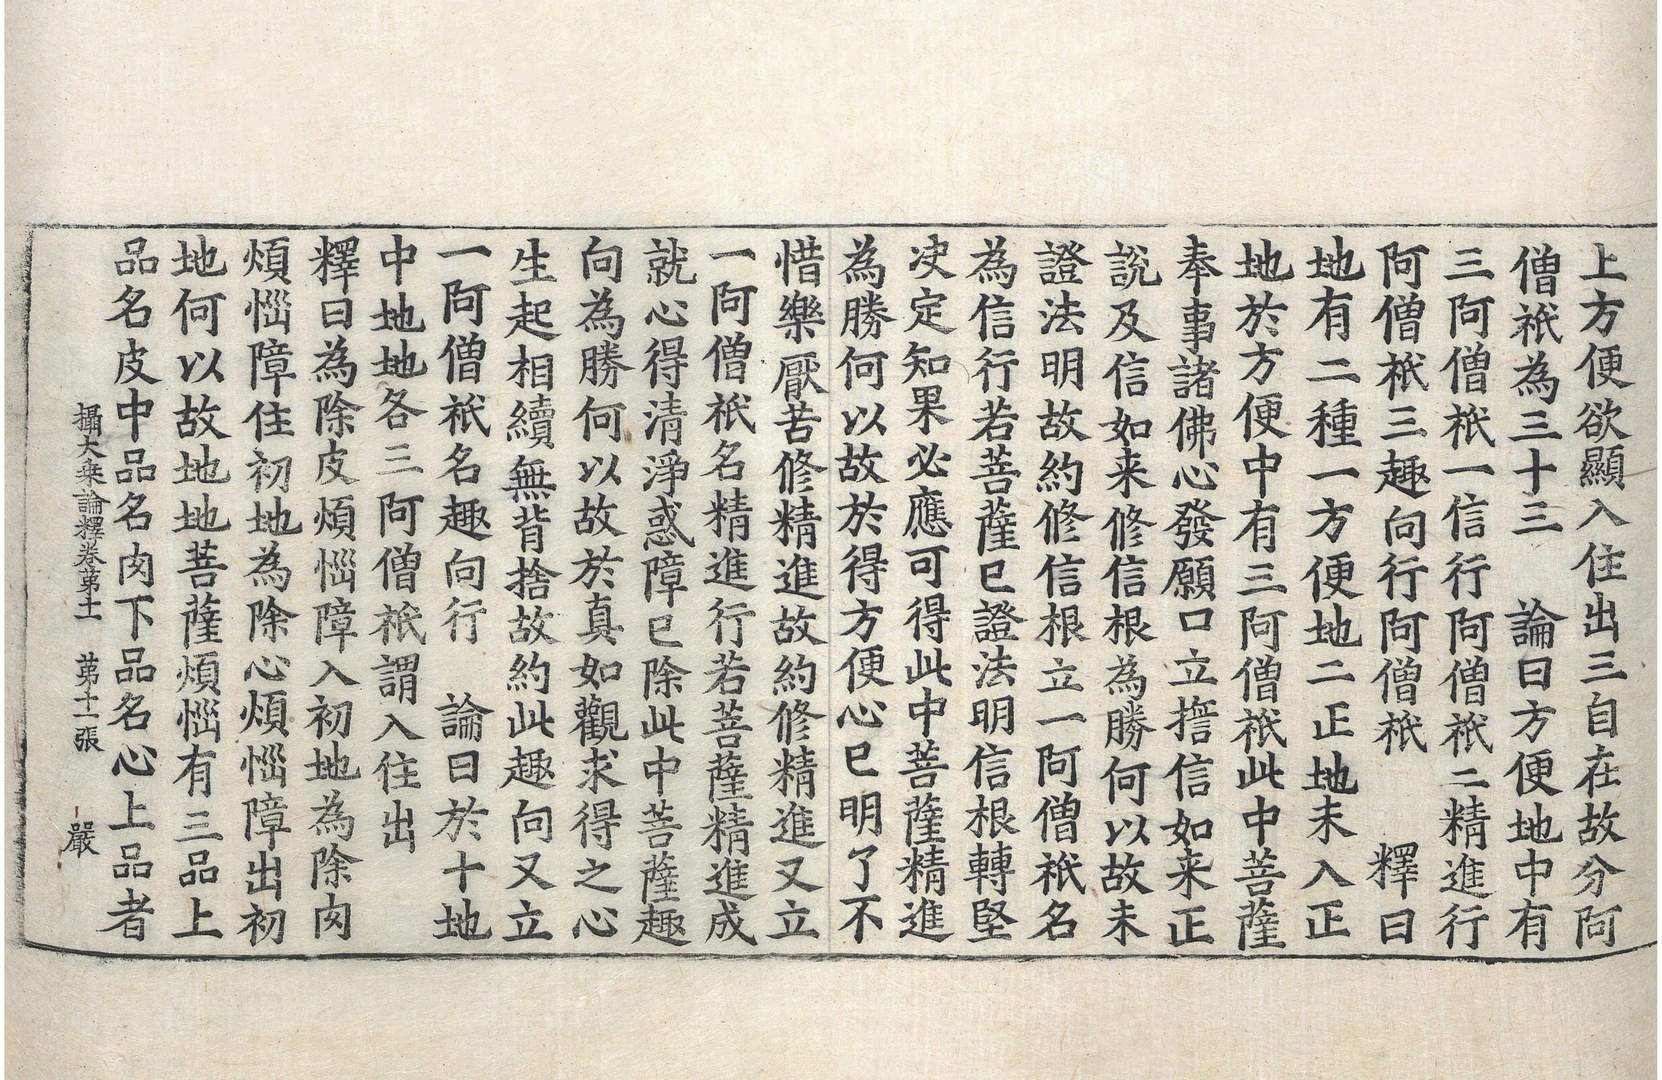 上方便欲顯入住出三自在故分阿
僧祇為三十三　論曰方便地中有
三阿僧祇一信行阿僧祇二精進行
阿僧祇三趣向行阿僧祇　釋曰
地有二種一方便地二正地未入正
地於方便中有三阿僧祇此中菩薩
奉事諸佛心發願口立擔信如来正
說及信如来修信根為勝何以故未
證法明故約修信根立一阿僧祇名
為信行若菩薩已證法明信根轉堅
决定知果必應可得此中菩薩精進
為勝何以故於得方便心已明了不
惜樂厭苦修精進故約修精進又立
一阿僧祇名精進行若菩薩精進成
就心得清淨惑障已除此中菩薩趣
向為勝何以故於真如觀求得之心
生起相續無背捨故約此趣向又立
一阿僧祇名趣向行　論曰於十地
中地地各三阿僧祇謂入住出
釋曰為除皮煩惱障入初地為除肉
煩惱障住初地為除心煩惱障出初
地何以故地地菩薩煩惱有三品上
品名皮中品名肉下品名心上品者
攝大乘論釋卷第十一　第十一張　嚴